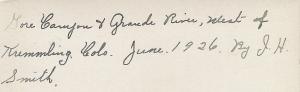 Gore Canyon & Grande River, West of
Kremmling, Colo. June. 1926. By J. H.
Smith.